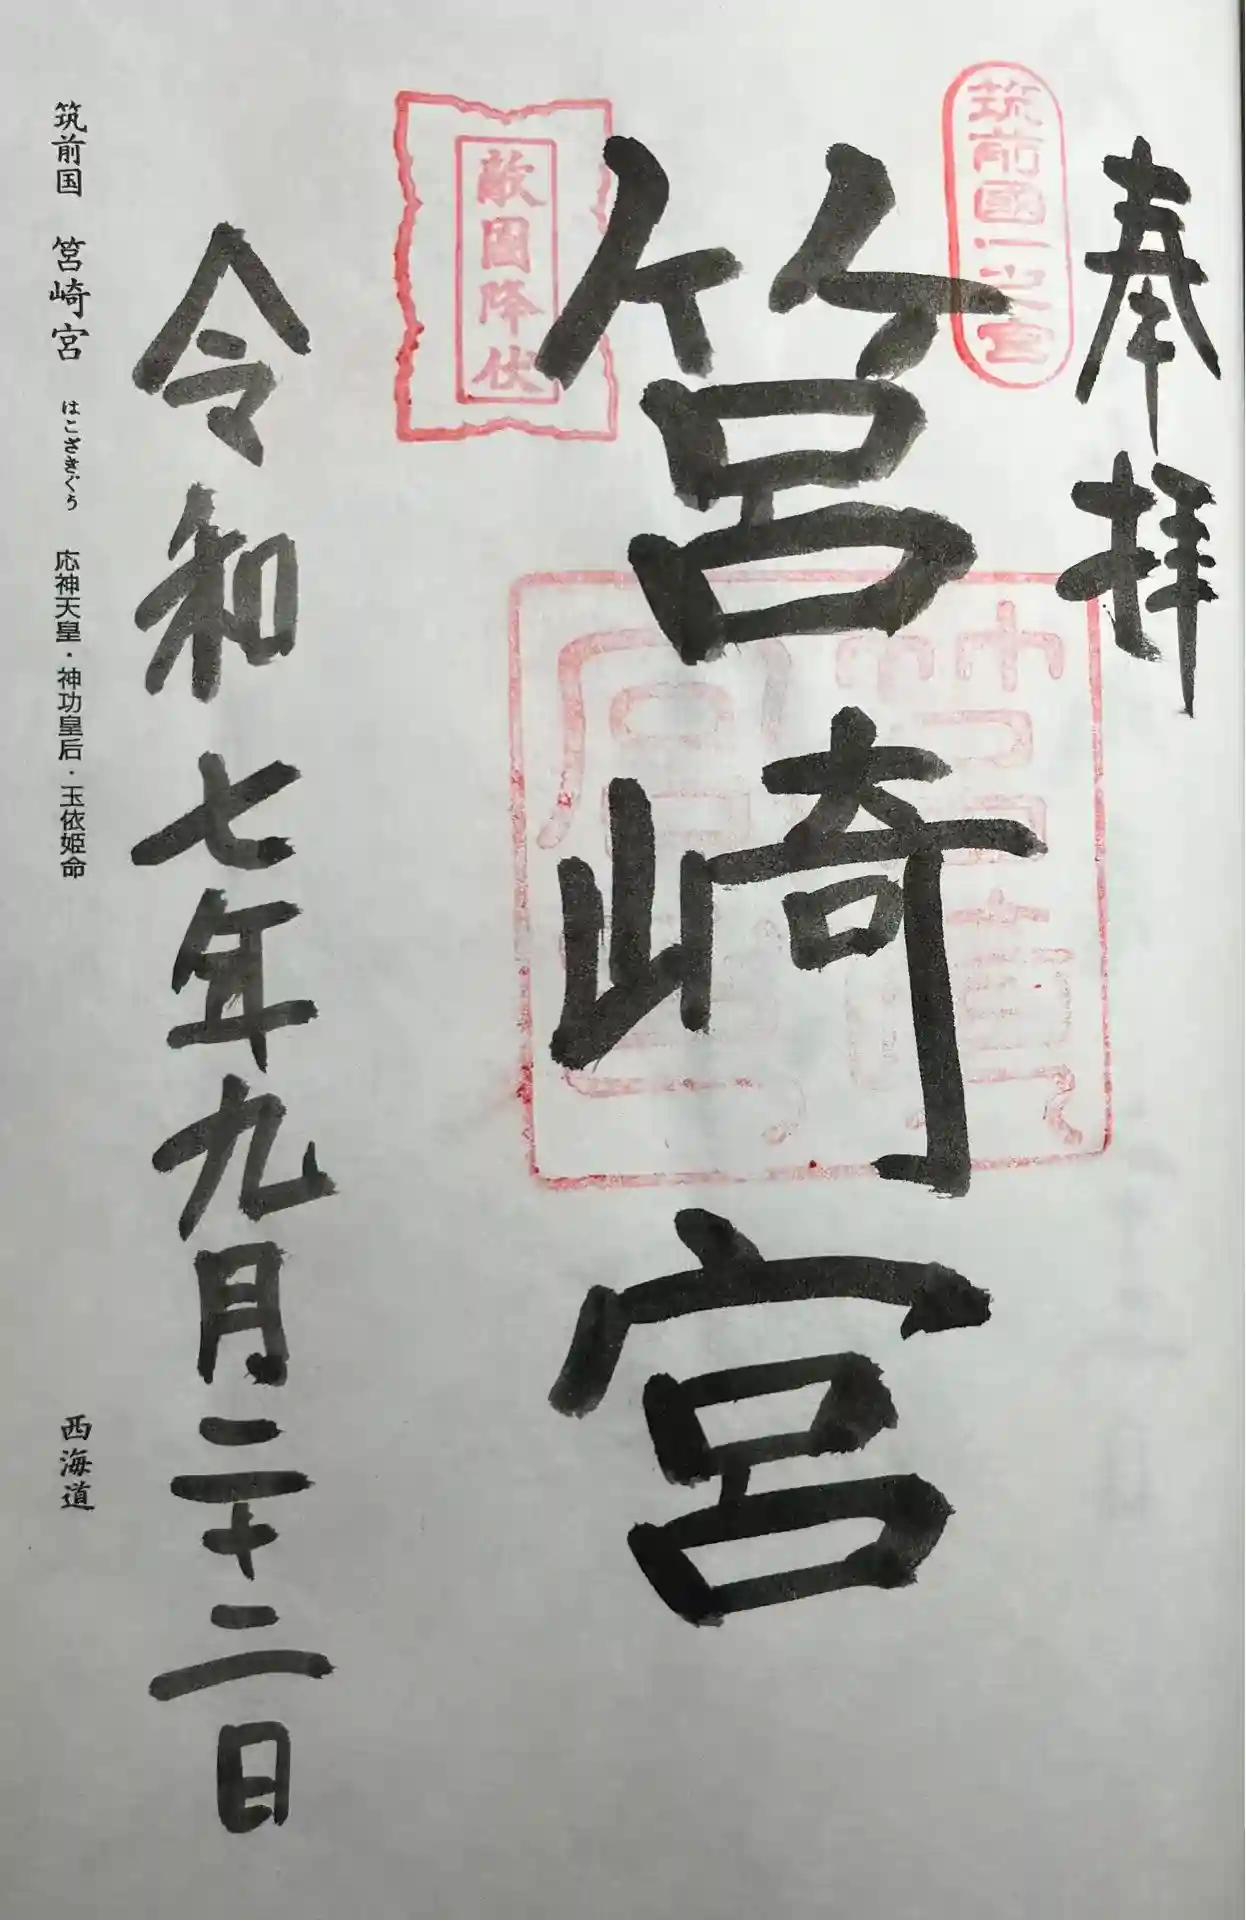 奉拝
筑前國一之宮
筥崎宮
敵国降伏
令和七年九月二十二日
筑前国 筥崎宮 はこざきぐう 応神天皇・神功皇后・玉依姫命
西海道